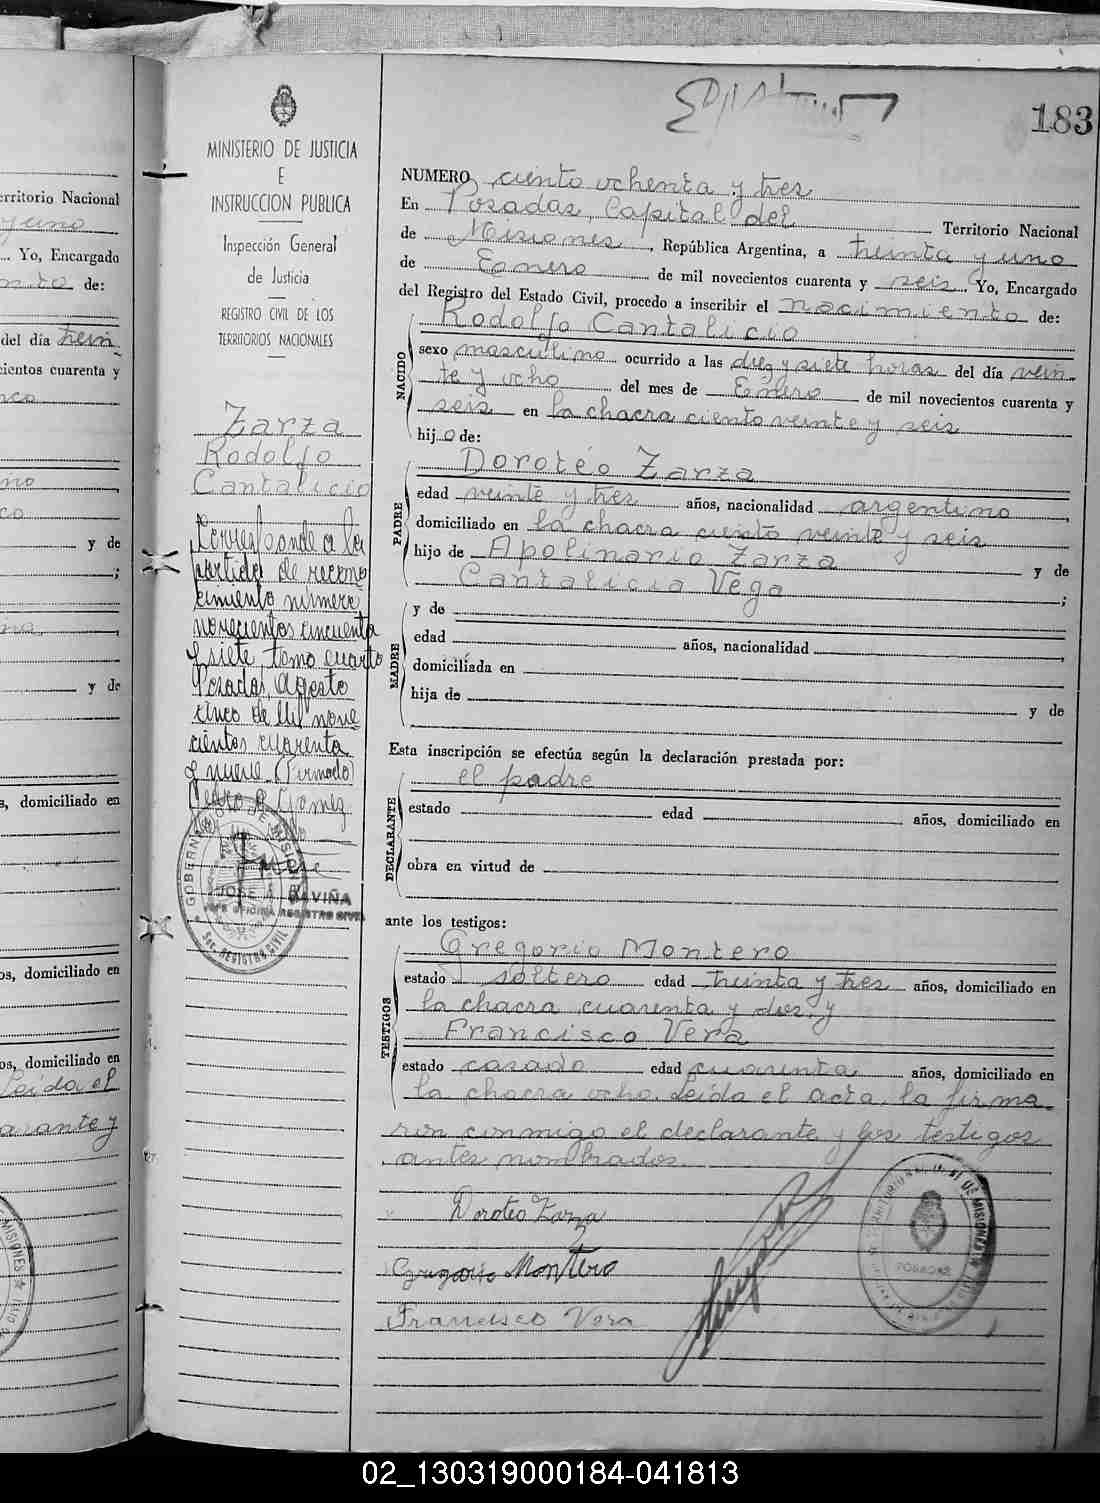 183
MINISTERIO DE JUSTICIA
E
INSTRUCCION PUBLICA
Inspección General
de Justicia
REGISTRO CIVIL DE LOS
TERRITORIOS NACIONALES
Zarza
Rodolfo
Cantalicio
Corresponde a la
partida de recono
cimiento número
novecientos cincuenta
y siete, tomo cuarto
Posadas, Agosto
cinco de Mil nove
cientos cuarenta
y nueve (Firmado)
Pedro R. Gomez
JOSE A. GAVIÑA
JEFE OFICINA REGISTRO CIVIL
GOBERNACION DE MISIONES
SEC. REGISTRO CIVIL
NUMERO ciento ochenta y tres
En Posadas, Capital del Territorio Nacional
de Misiones, República Argentina, a treinta y uno
de Eenero de mil novecientos cuarenta y seis Yo, Encargado
del Registro del Estado Civil, procedo a inscribir el nacimiento de:
NACIDO
Rodolfo Cantalicio
sexo masculino ocurrido a las diez y siete horas del día vein-
te y ocho del mes de Enero de mil novecientos cuarenta y
seis en la chacra ciento veinte y seis
hijo de:
PADRE
Doroteo Zarza
edad veinte y tres años, nacionalidad argentino,
domiciliado en la chacra ciento veinte y seis
hijo de Apolinario Zarza y de
Cantalicia Vega;
MADRE
y de
edad años, nacionalidad
domiciliada en
hija de y de
Esta inscripción se efectúa según la declaración prestada por:
DECLARANTE
el padre
estado edad años, domiciliado en
obra en virtud de
ante los testigos:
TESTIGOS
Gregorio Montero
estado soltero edad treinta y tres años, domiciliado en
la chacra cuarenta y dos, y
Francisco Vera
estado casado edad cuarenta años, domiciliado en
la chacra ocho. Leída el acta, la firma-
ron conmigo el declarante y los testigos
antes nombrados.
Doroteo Zarza
Gregorio Montero
Francisco Vera
POSADAS
erritorio Nacional
y uno
Yo, Encargado
de:
del día trein
cientos cuarenta y
y de
;
y de
s, domiciliado en
os, domiciliado en
os, domiciliado en
Leída el
arante y
02_130319000184-041813